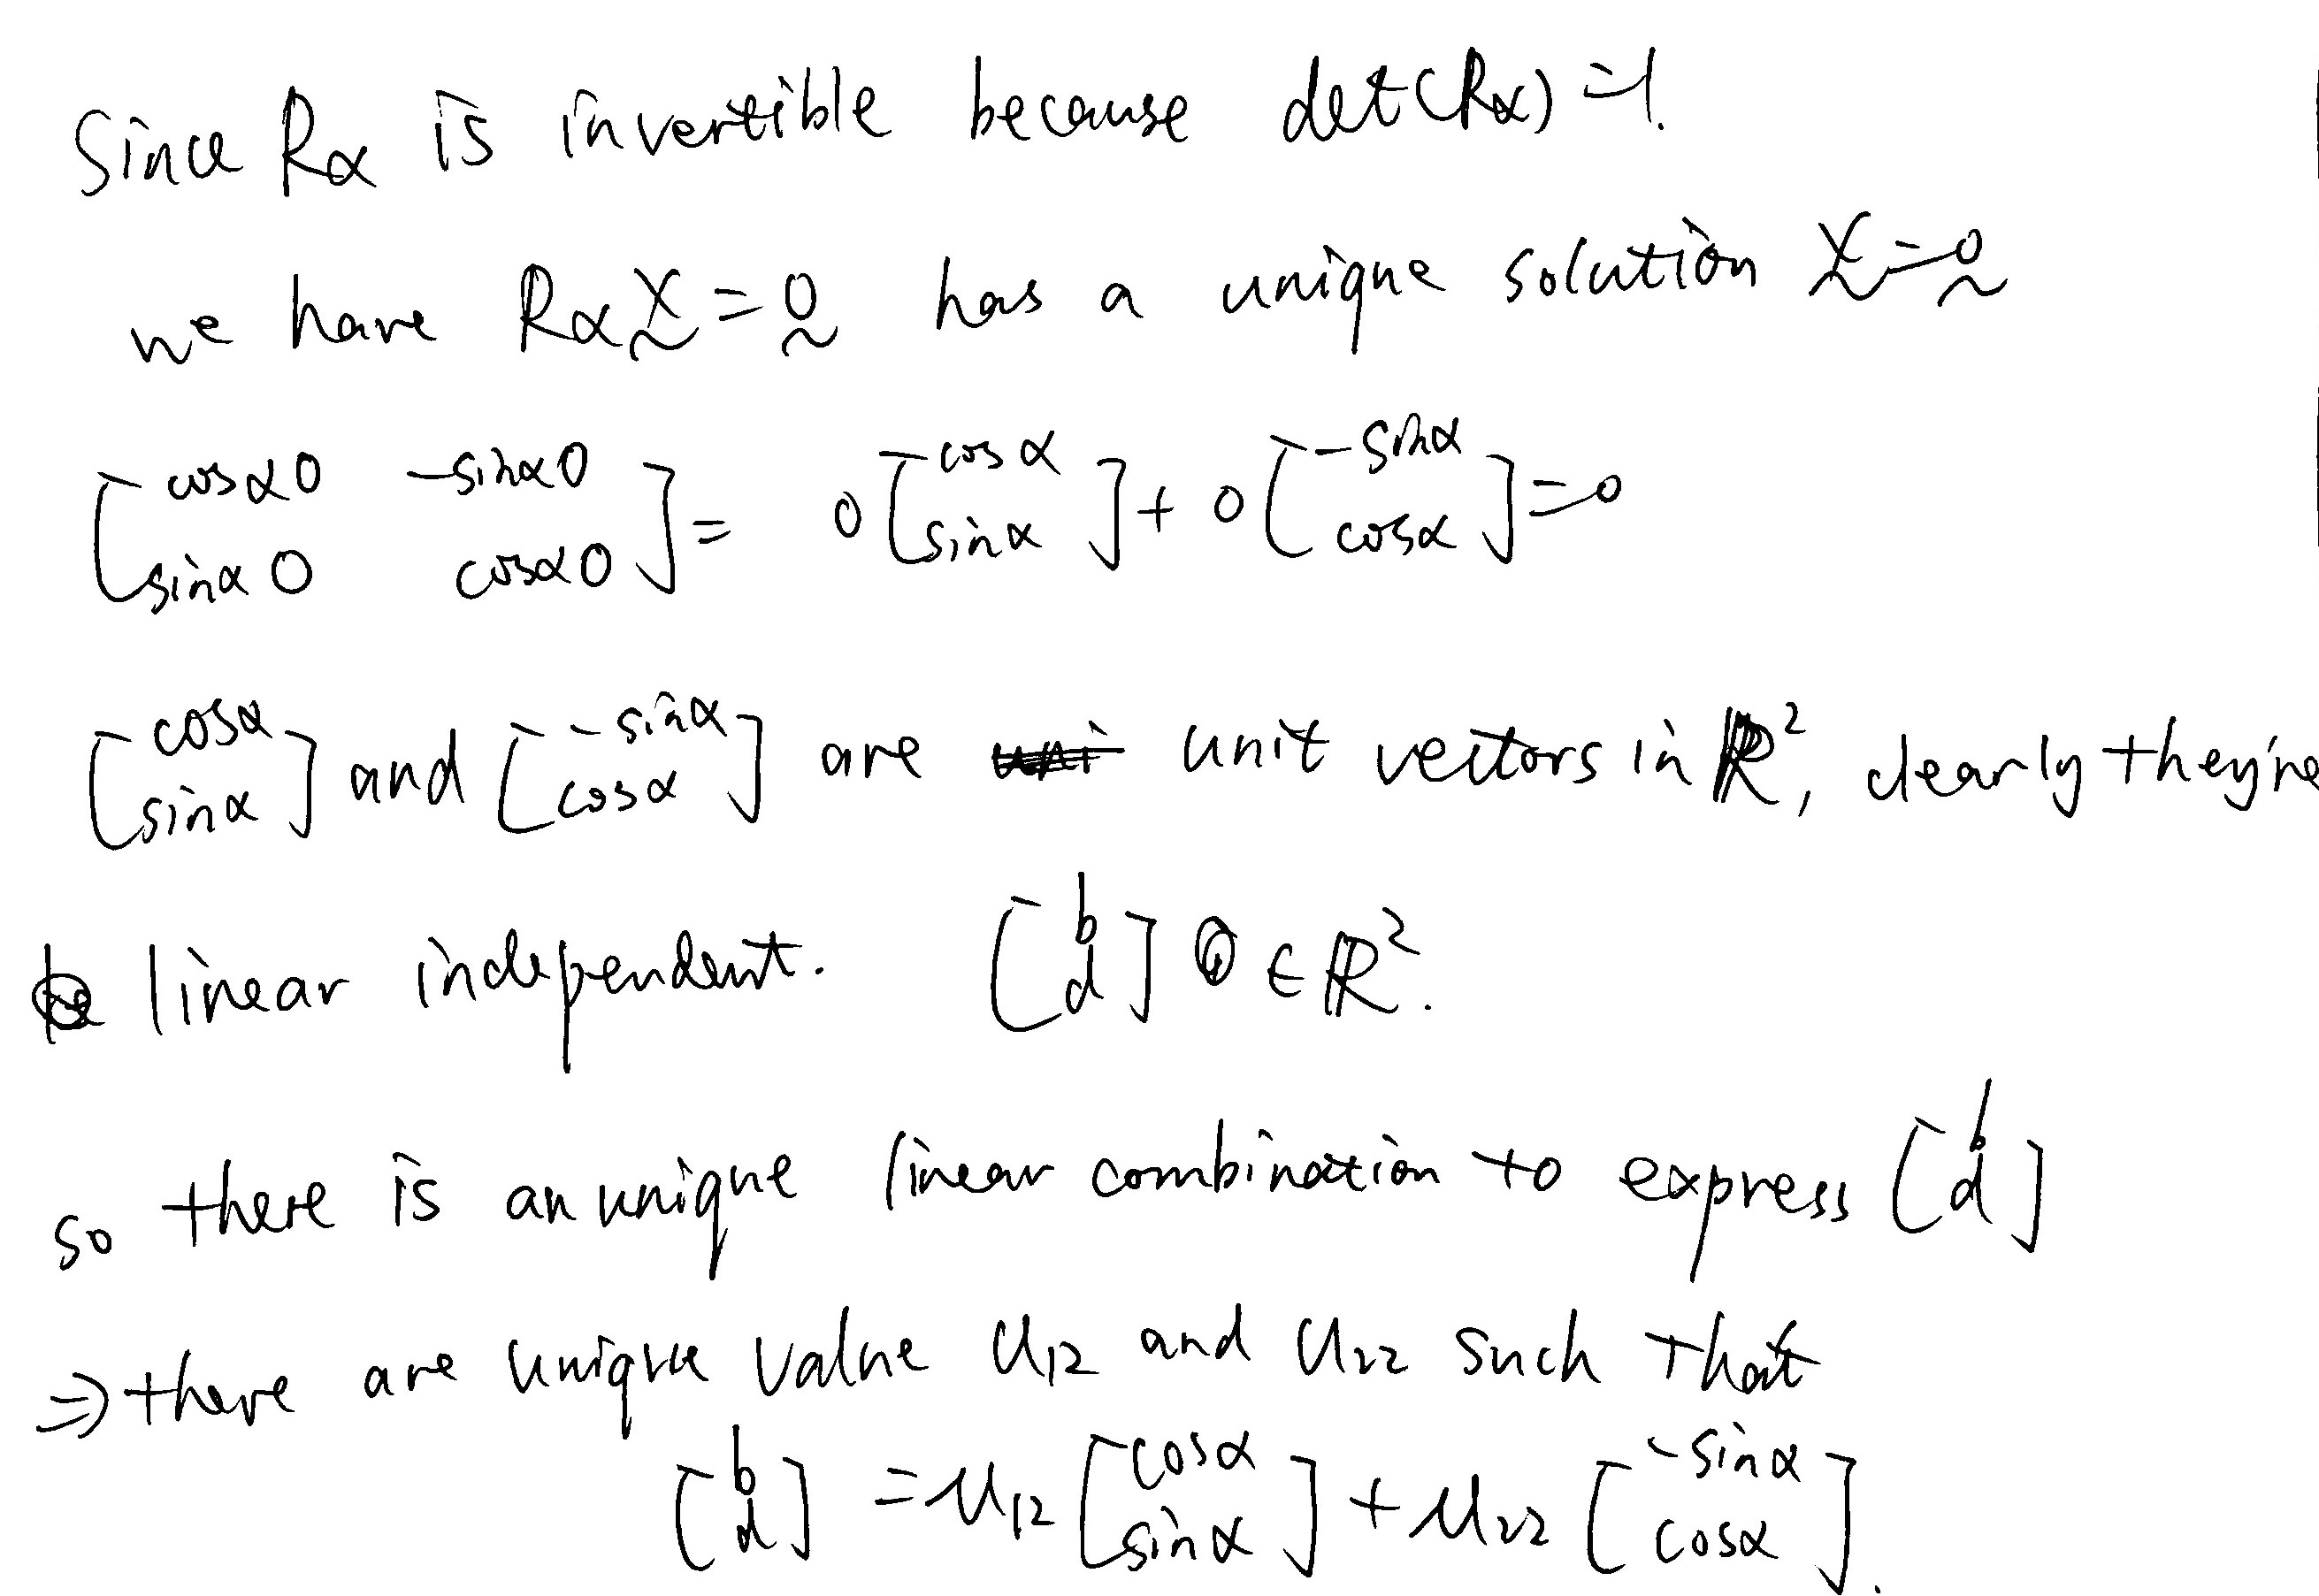 Since Rα is invertible because det(Rα)=1.
we have Rα x̰ = 0̰ has a unique solution x̰ = 0̰
[cosα0 -sinα0; sinα0 cosα0] = 0[cosα; sinα] + 0[-sinα; cosα] = 0
[cosα; sinα] and [-sinα; cosα] are unit vectors in ℝ², clearly they're
linear independent. [b; d] ∈ ℝ².
so there is an unique linear combination to express [b; d]
⇒ there are unique value u₁₂ and u₂₂ such that
[b; d] = u₁₂ [cosα; sinα] + u₂₂ [-sinα; cosα].